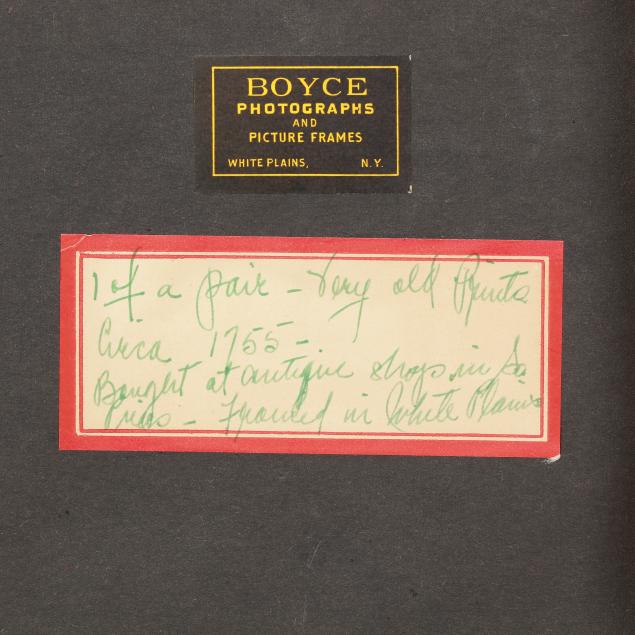 BOYCE
PHOTOGRAPHS
AND
PICTURE FRAMES
WHITE PLAINS, N.Y.
1 of a pair – Very old Prints
Circa 1755 –
Bought at antique shops in
– Framed in White Plains